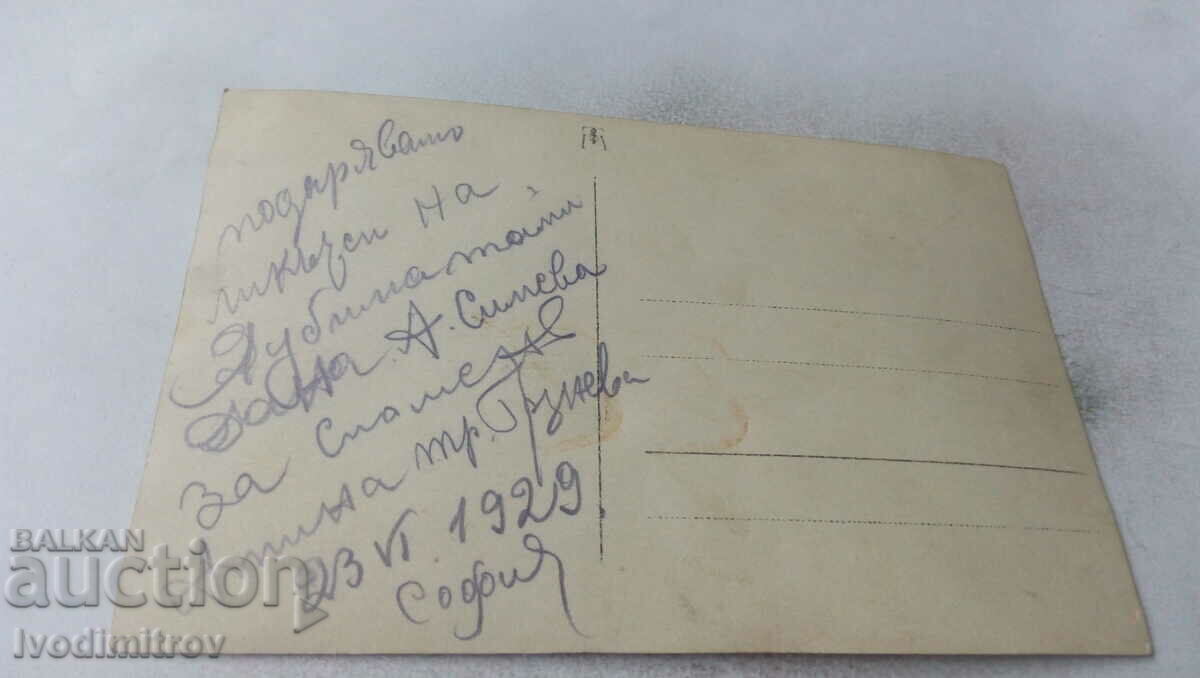 подарявамо
ликъси на
Любимата ни
Дона А. Симева
за спомен
от тр. Гунева
23 VI. 1929.
София
BALKAN
auction
Ivodimitrov